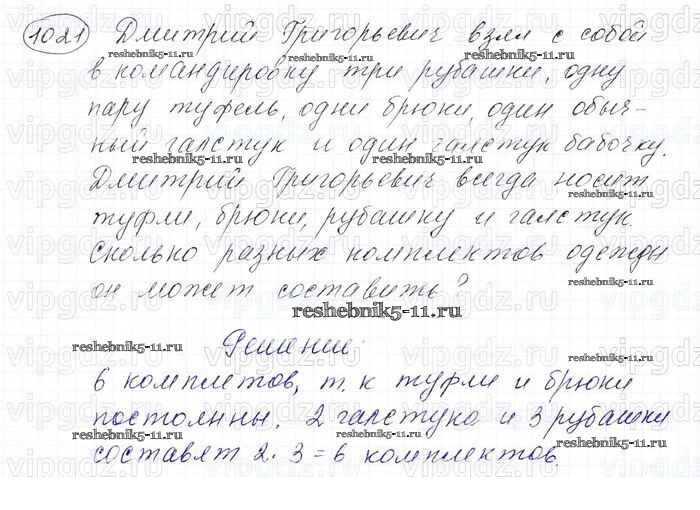 1021 Дмитрий Григорьевич взял с собой
в командировку три рубашки, одну
пару туфель, одни брюки, один обыч-
ный галстук и один галстук бабочку.
Дмитрий Григорьевич всегда носит
туфли, брюки, рубашку и галстук.
Сколько разных комплектов одежды
он может составить?
Решение:
6 комплетов, т.к туфли и брюки
постоянны. 2 галстука и 3 рубашки
составят 2·3=6 комплектов.
reshebnik5-11.ru
vipgdz.ru